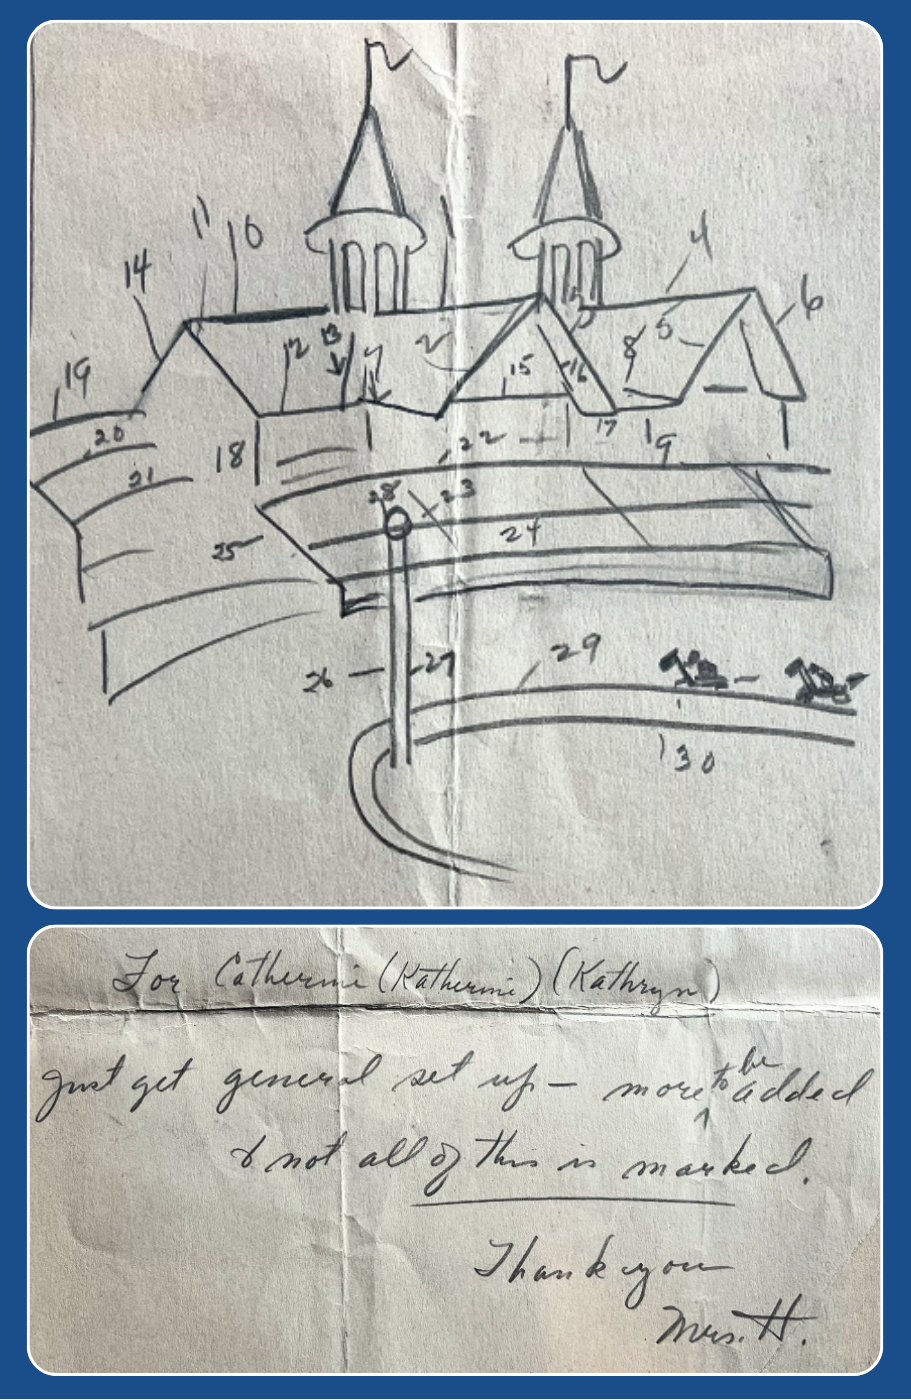 11 10
4
14
6
12 13 7 2 5
8 5
19
15 16
17
20 18 22 19
21
28 23
25 24
26 27 29
30
For Catherine (Katherine) (Kathryn)
Just get general set up – more to be added
& not all of this is marked.
Thank you
Mrs. H.